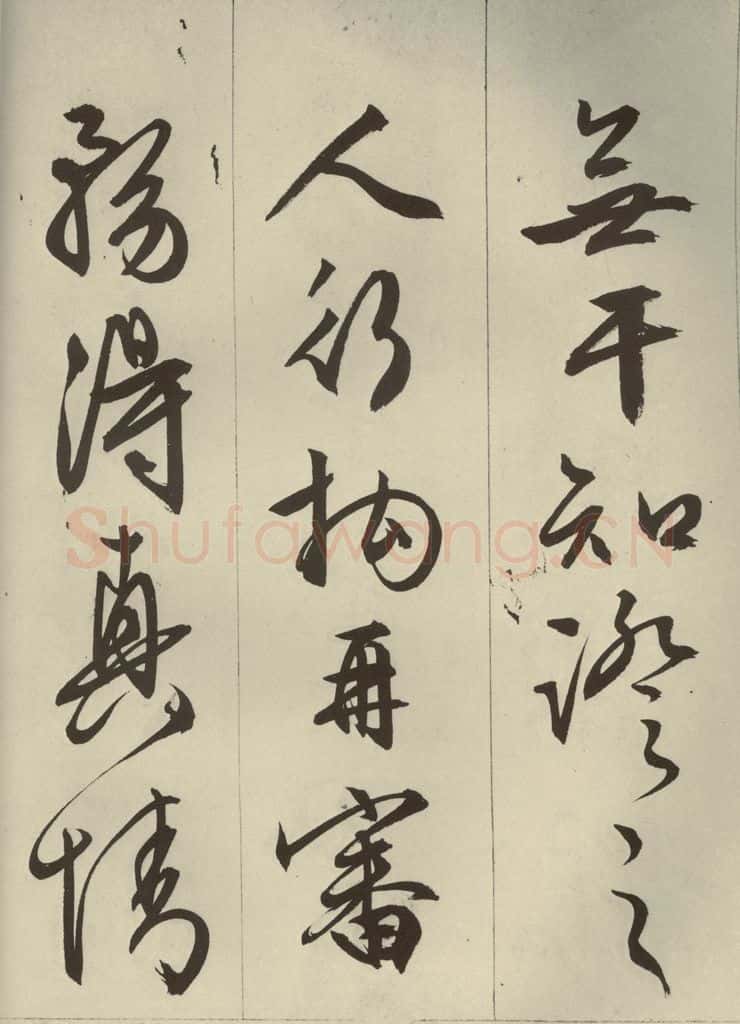 無干知證之
人拘再審
務得真情
Shufawang.CN